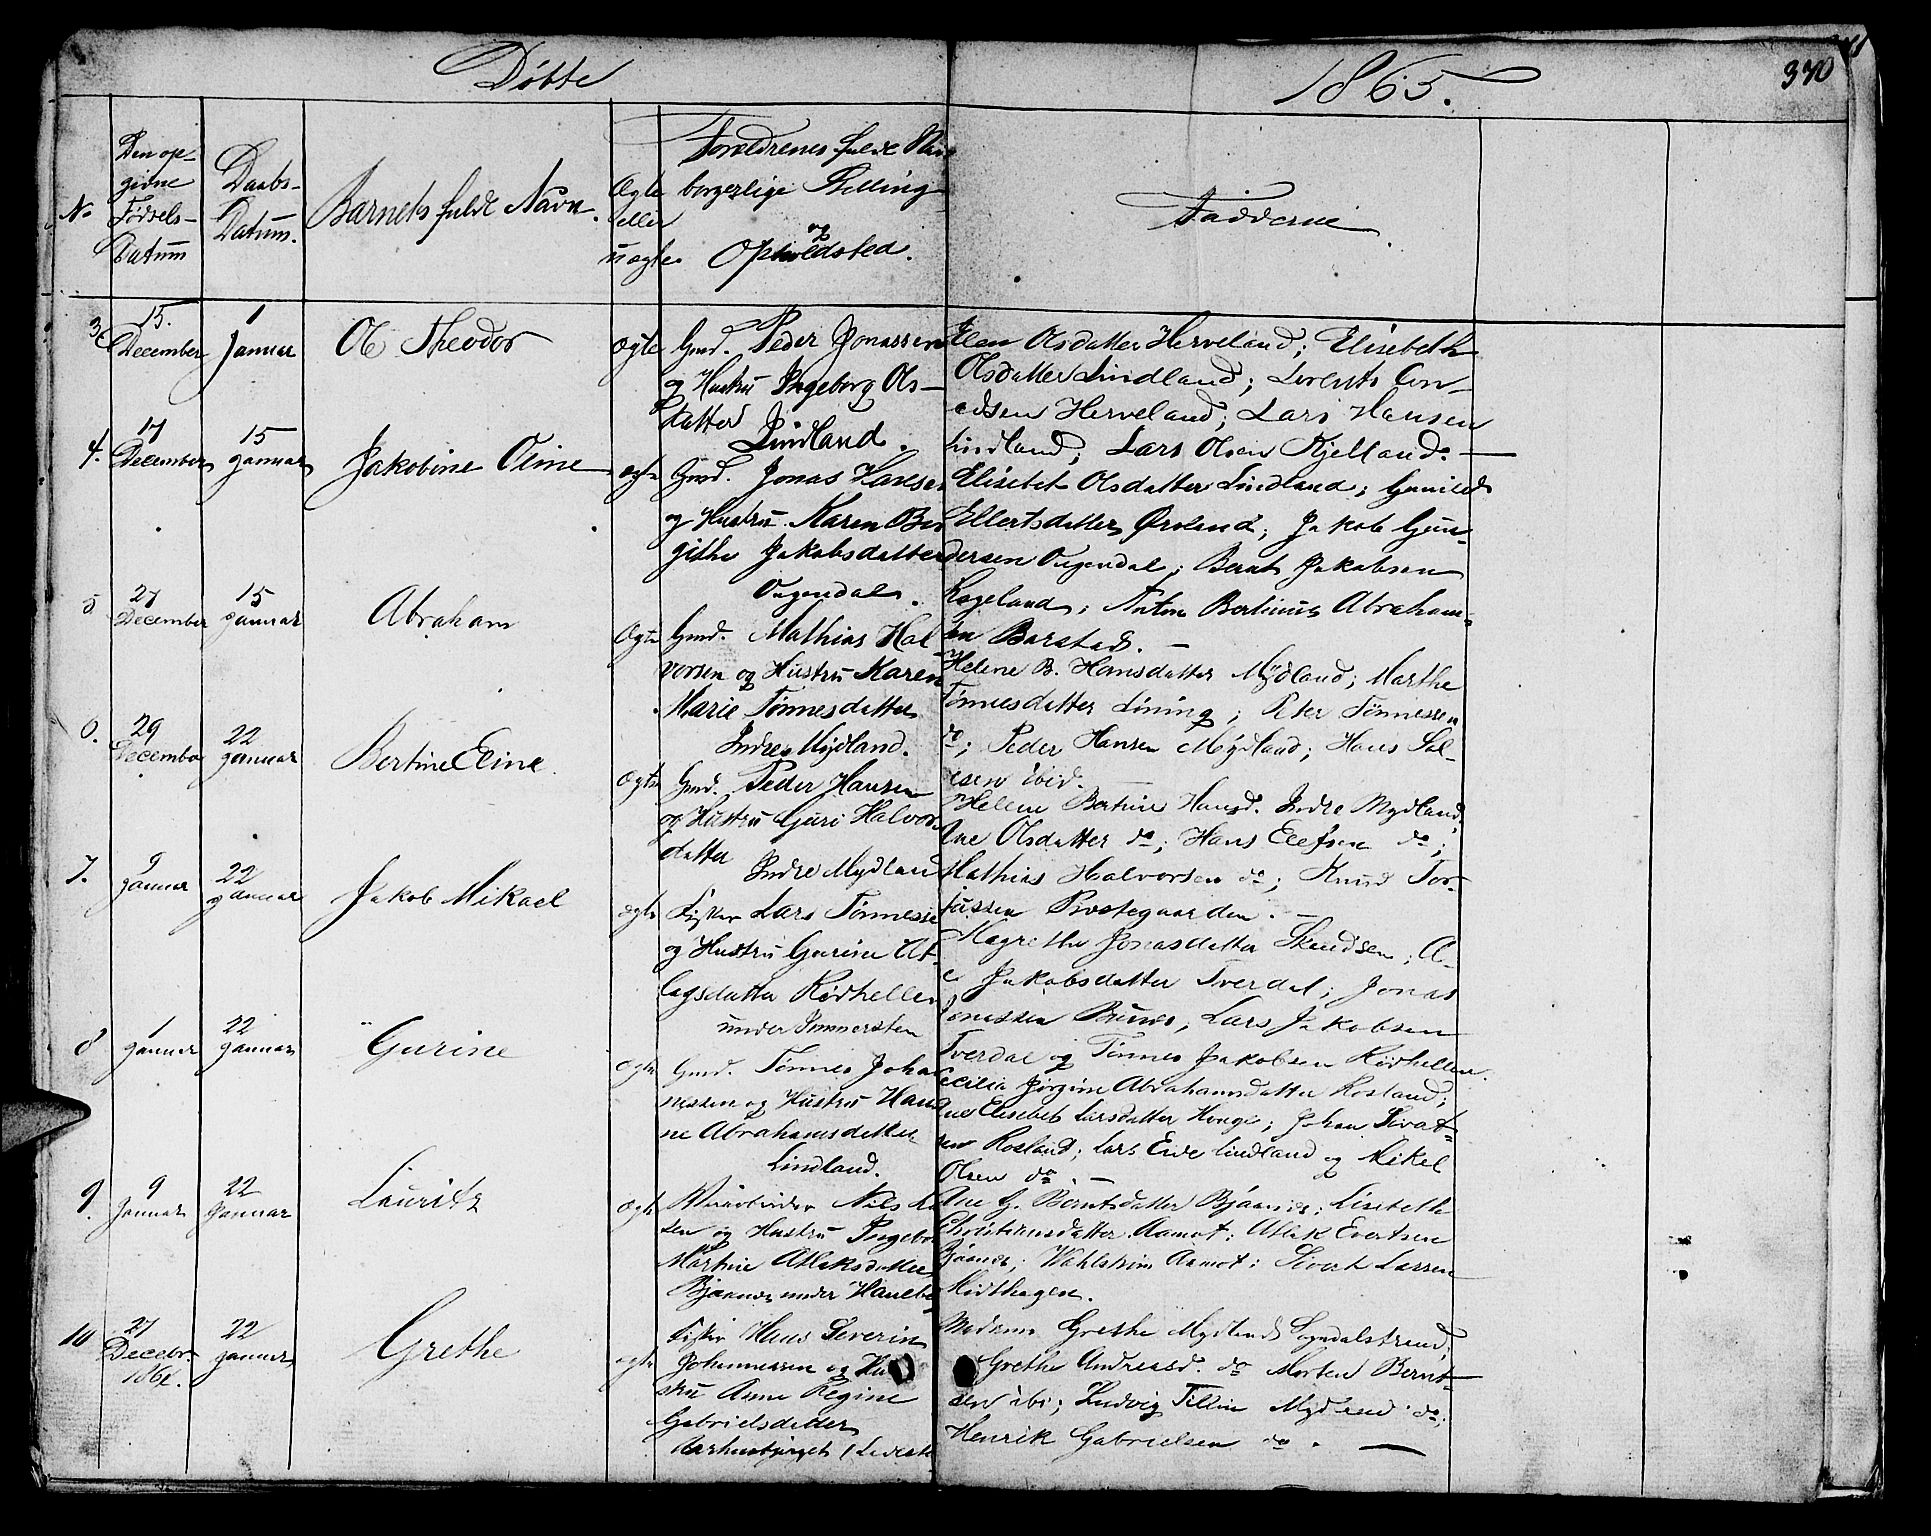 Døbte
1865.
370
No
Den op-
givne
Fødsels-
Datum
Daabs-
Datum.
Barnets fulde Navn.
Ægte
eller
uægte
Forældrenes fulde Nav
borgerlige Stilling
og
Opholdsted.
Fadderne
3
15.
December
1
Januar
Ole Theodor
ægte
Gmd. Peder Jonassen
og Hustru Ingeborg Ols-
datter
Lindland.
Elen Olsdatter Herveland; Elisebeth
Olsdatter Lindland; Lorents Con-
radsen Herveland; Lars Hansen
Lindland; Lars Olsen Kjelland. —
4.
17
December
15
Januar
Jakobine Oline
ægte
Gmd. Jonas Hansen
og Hustru Karen Bir
githe Jakobsdatter
Ougendal.
Elisebet Olsdatter Lindland; Gunild
Ellertsdatter Øroland; Jakob Gun-
dersen Ougendal; Bernt Jakobsen
Rægeland; Anton Bertinius Abraham-
sen Barstad. —
5
27
December
15
Januar
Abraham
Ægte
Gmd. Mathias Hal-
vorsen og Hustru Karen
Marie Tønnesdatter
Indre Mydland.
Helene B. Hansdatter Mydland; Marthe
Tønnesdatter Lining; Peter Tønnessen
do; Peder Hansen Mydland; Hans Sal-
esen ibid. —
6.
29
December
22
Januar
Bertine Eline
ægte
Gmd. Peder Hansen
og Hustru Guri Halvors
datter
Indre Mydland
Helene Bertine Hansd. Indre Mydland;
Ane Olsdatter do; Hans Elefsen do;
Mathias Halvorsen do; Knud Tor-
jussen Præstegaarden. —
7.
9
Januar
22
Januar
Jakob Mikael
ægte
Fisker Lars Tønnesse
og Hustru Gurine At-
lagsdatter Rødhellen
under Immersten
Magrethe Jonasdatter Skeudsen; A-
e Jakobsdatter Tverdal; Jonas
Jonassen Buene; Lars Jakobsen
Tverdal og Tønnes Jakobsen Rødhellen.
8
1
Januar
22
Januar
Gurine
ægte
Gmd. Tønnes Johan
nessen og Hustru Han
ne Abrahamsdatter
Lindland.
Cecilia Jørgine Abrahamsdatter Rosland;
Ane Elisebet Larsdatter Hauge; Johan Sivat-
sen Rosland; Lars Eive Lindland og Mikel
Olsen do. —
9.
9
Januar
22
Januar
Lauritz
ægte
Nils La
sen og Hustru Ingebor
Martine Atlaksdatter
Bjaanes under Haneberg
Ane G. Berntsdatter Bjaanes; Lisebeth
Christiansdatter Aamot; Atlak Evertsen
Bjaanes; Wahlstrøm Aamot; Sivert Larsen
Midthagen.
10
27
Decebr.
1864.
22
Januar
Grethe
ægte
Fisker Hans Severin
Johannessen og Hu
stru Anne Regine
Gabrielsdatter
Madame Grethe Mydland Sogndalstrand;
Grethe Andreasd. do Morten Bernt-
sen ibi; Ludvig Tillin Mydland do;
Henrik Gabrielsen do. —